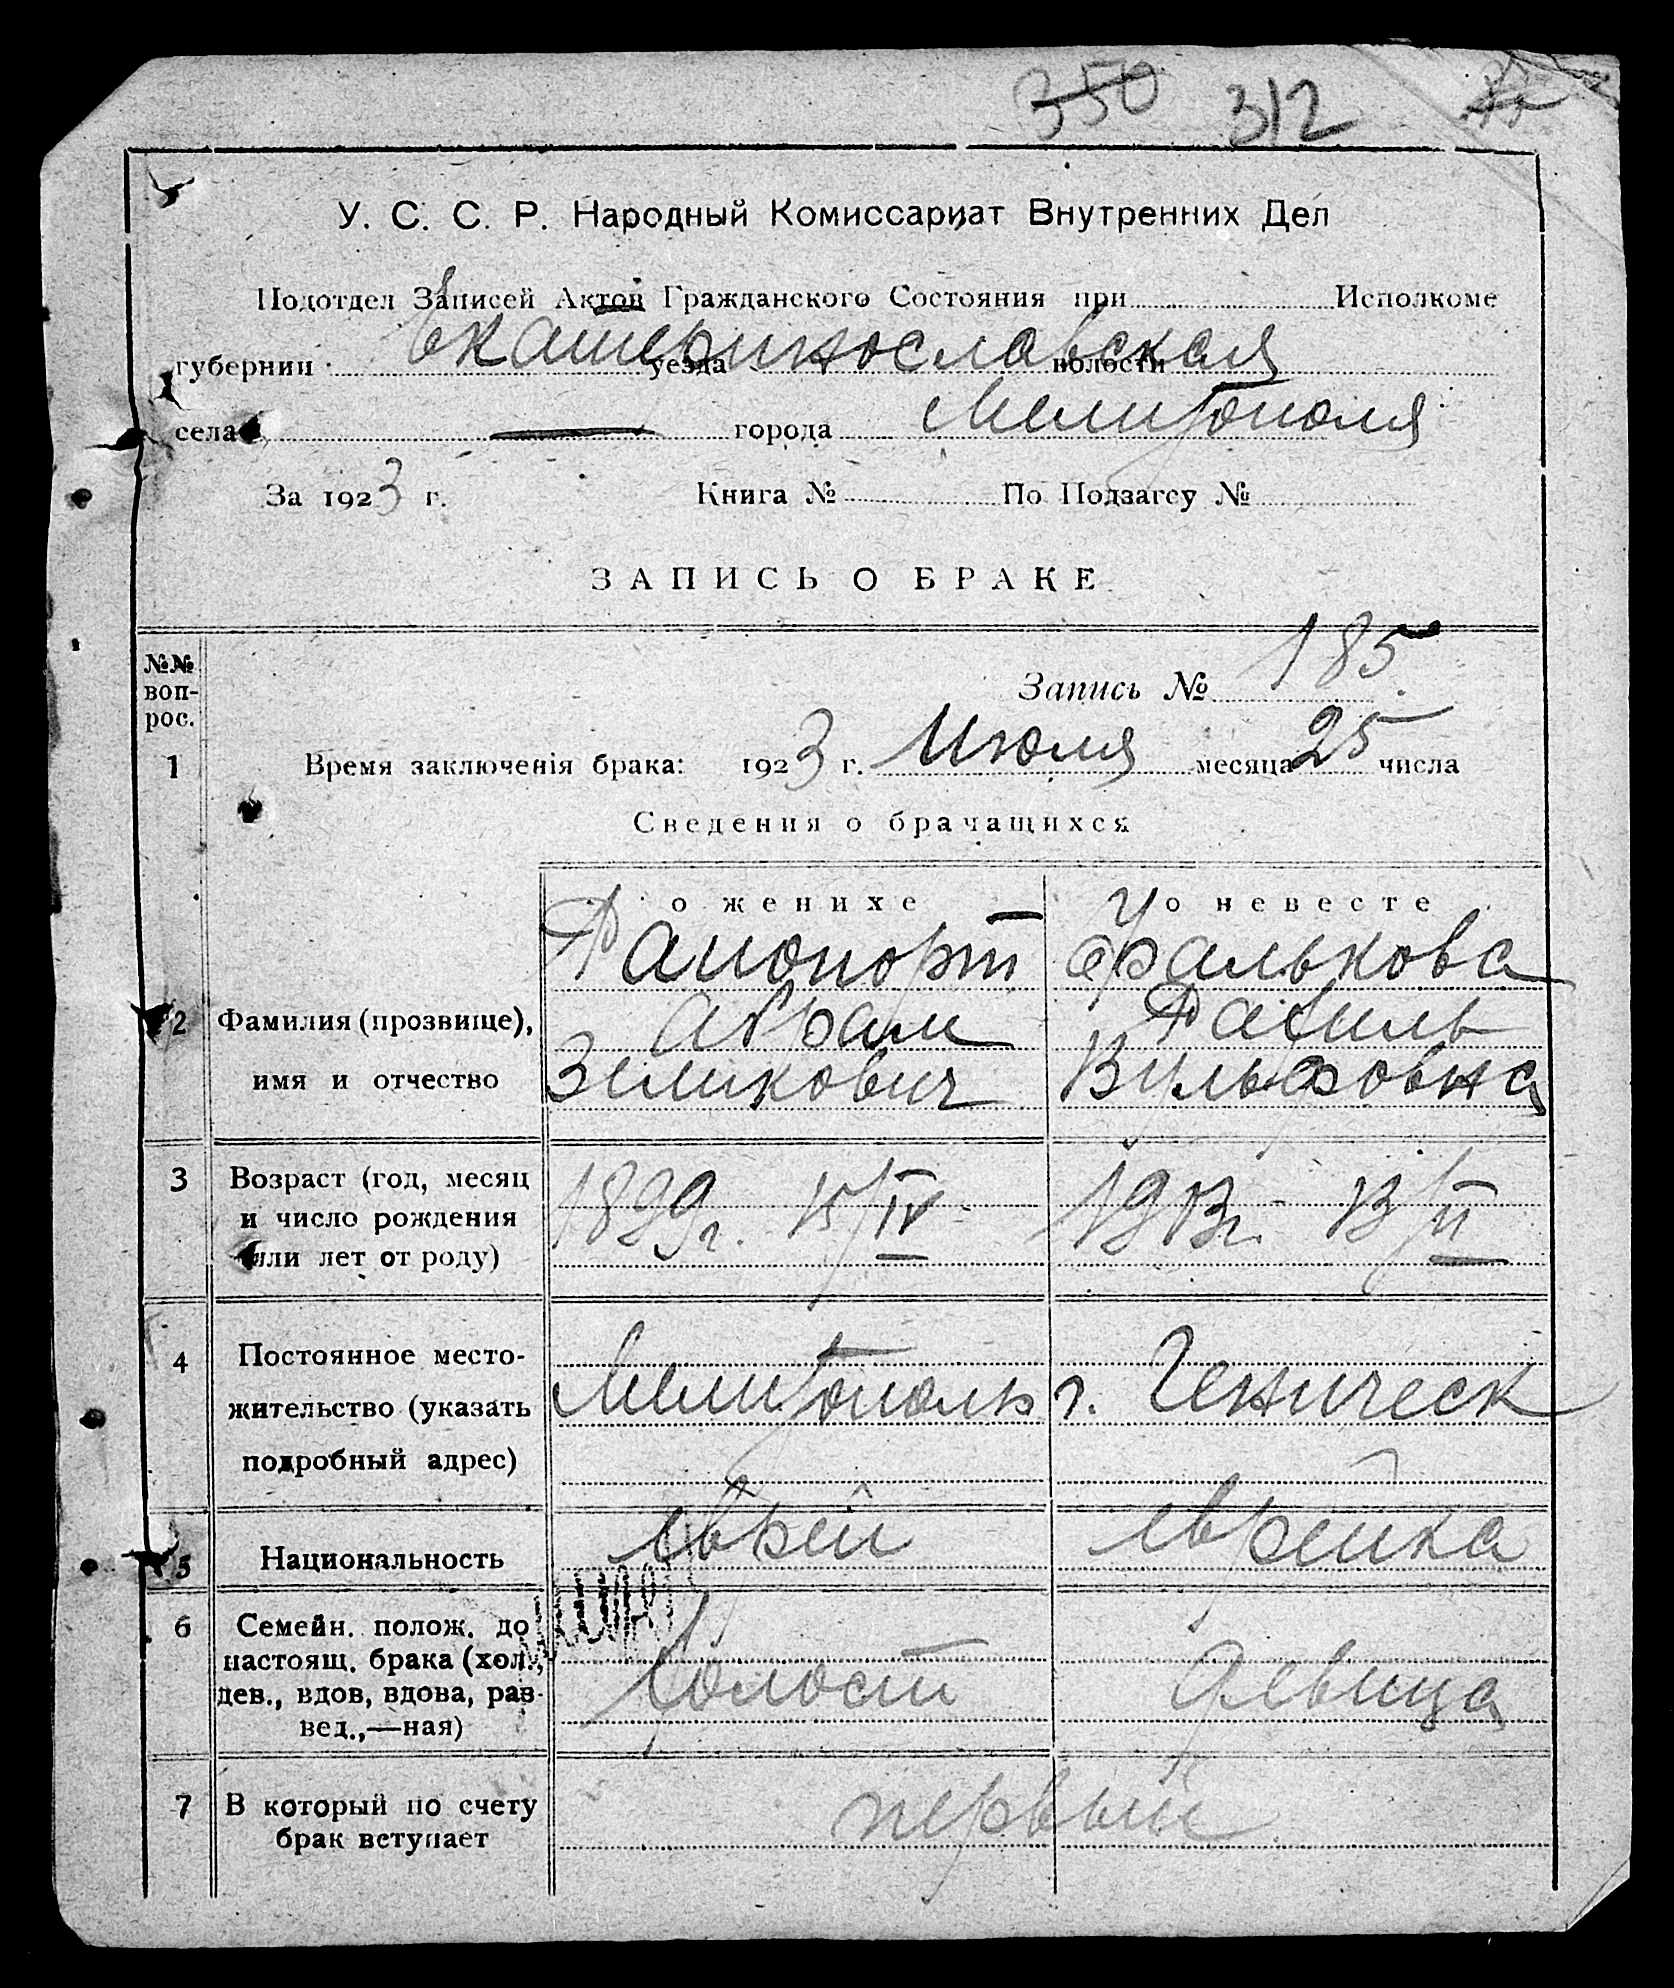 350 312
У. С. С. Р. Народный Комиссариат Внутренних Дел
Подотдел Записей Актов Гражданского Состояния при Исполкоме
губернии Екатеринославская уезда волости
села — города Мелитополя
За 1923 г. Книга № По Подзагсу №
ЗАПИСЬ О БРАКЕ
№№ вопрос.
Запись № 185.
1 Время заключенія брака: 1923 г. Июля месяца 25 числа
Сведения о брачащихся
о женихе о невесте
Рапопорт Фралькова
2 Фамилия (прозвище), Абрам Рахиль
имя и отчество Зеликович Вульфовна
3 Возраст (год, месяц
и число рождения 1899г. 15/IV 1903г. 13/II
или лет от роду)
4 Постоянное место-
жительство (указать Мелитополь г. Геническ
подробный адрес)
5 Национальность еврей еврейка
6 Семейн. полож. до
настоящ. брака (хол.,
дев., вдов, вдова, раз- Холост девица
вед.,—ная)
7 В который по счету первый
брак вступает